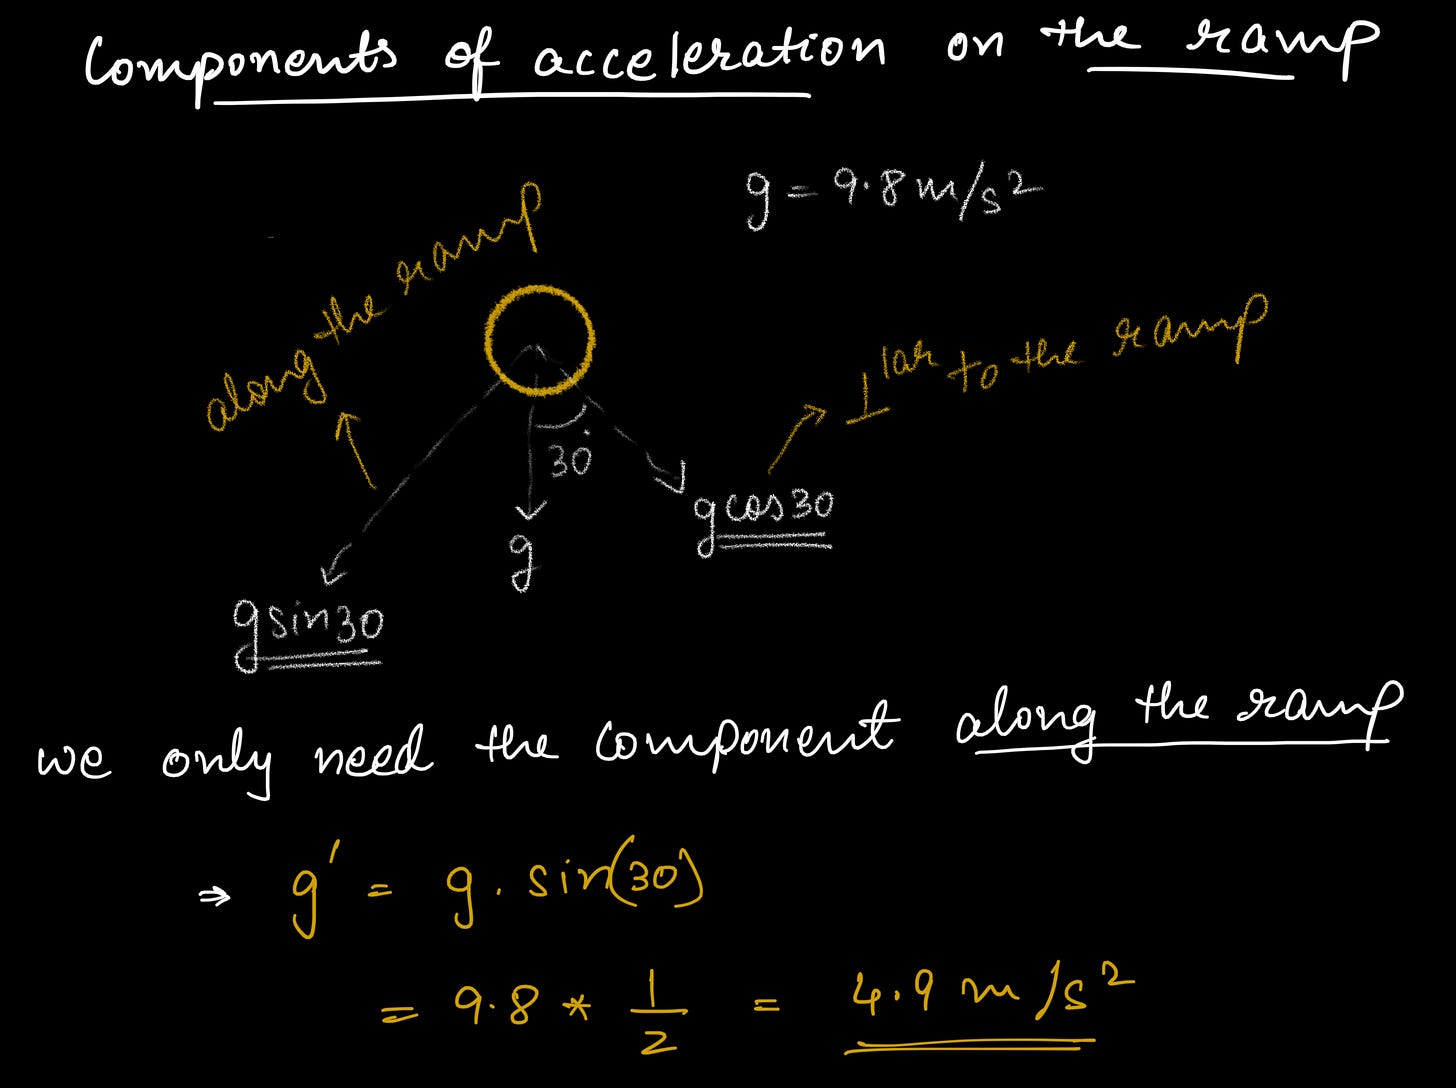 Components of acceleration on the ramp
g = 9.8 m/s²
along the ramp
⊥lar to the ramp
30°
g cos30
g
g sin30
we only need the component along the ramp
⇒ g' = g . sin(30)
= 9.8 * 1/2 = 4.9 m/s²